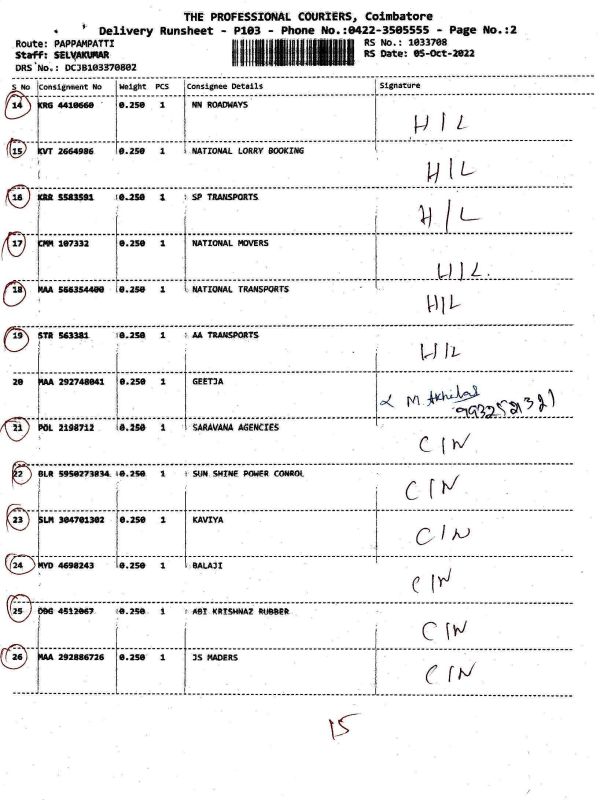 THE PROFESSIONAL COURIERS, Coimbatore
Delivery Runsheet - P103 - Phone No.:0422-3505555 - Page No.:2
Route: PAPPAMPATTI RS No.: 1033708
Staff: SELVAKUMAR RS Date: 05-Oct-2022
DRS No.: DCJB103370802
S No Consignment No Weight PCS Consignee Details Signature
14 KRG 4410660 0.250 1 NN ROADWAYS H/L
15 KVT 2664986 0.250 1 NATIONAL LORRY BOOKING H/L
16 KRR 5583591 0.250 1 SP TRANSPORTS H/L
17 CMM 107332 0.250 1 NATIONAL MOVERS H/L
18 MAA 566354400 0.250 1 NATIONAL TRANSPORTS H/L
19 STR 563381 0.250 1 AA TRANSPORTS H/L
20 MAA 292748041 0.250 1 GEETJA M.
21 POL 2198712 0.250 1 SARAVANA AGENCIES C/N
22 BLR 5950273834 0.250 1 SUN SHINE POWER CONROL C/N
23 SLM 304701302 0.250 1 KAVIYA C/N
24 MYD 4698243 0.250 1 BALAJI C/N
25 DBG 4512067 0.250 1 ABI KRISHNAZ RUBBER C/N
26 MAA 292886726 0.250 1 JS MADERS C/N
15